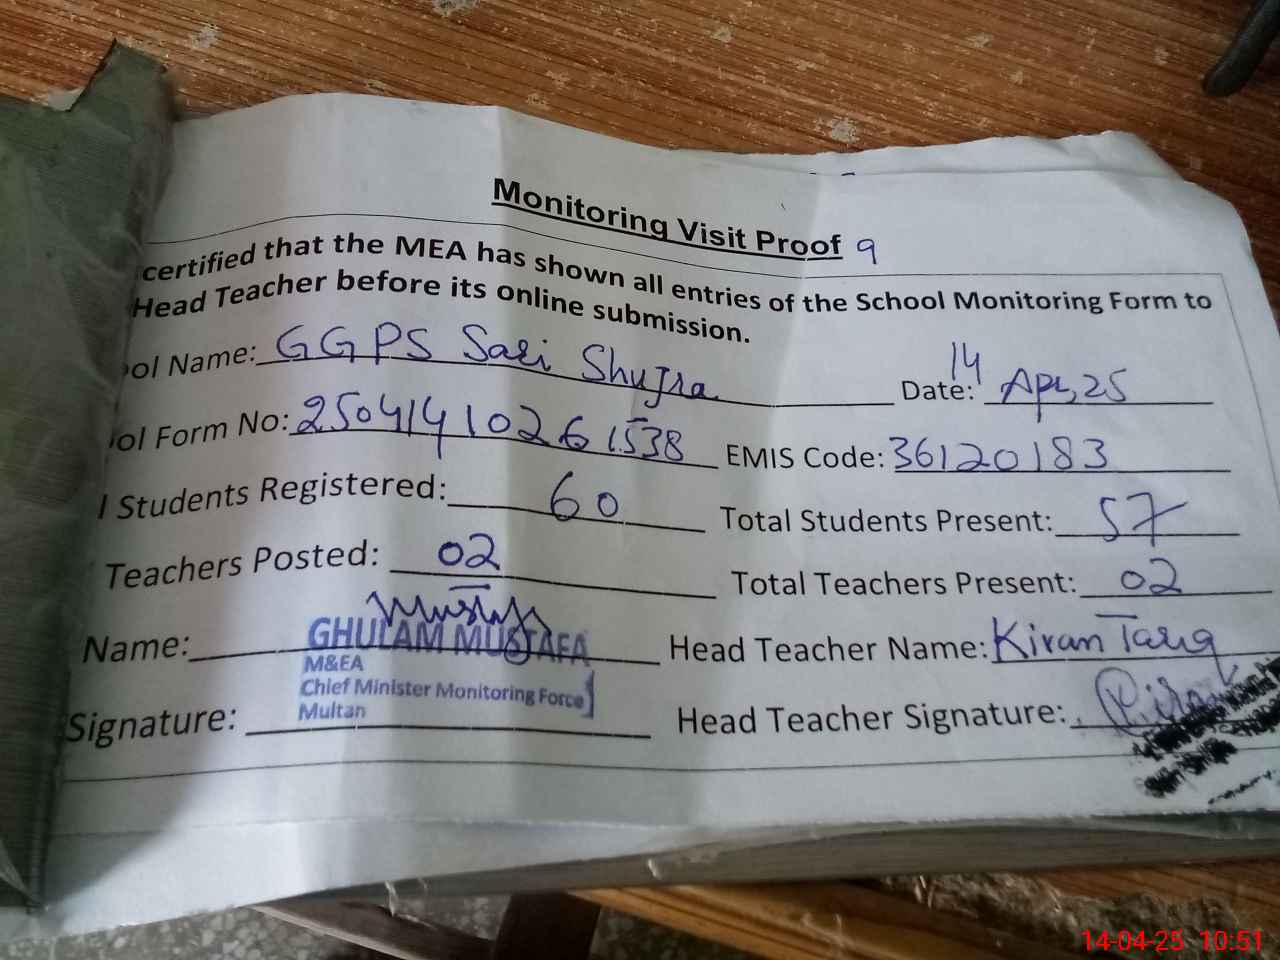 Monitoring Visit Proof 9
certified that the MEA has shown all entries of the School Monitoring Form to
Head Teacher before its online submission.
ol Name: GGPS Sari Shujra Date: 14 Apr, 25
ol Form No: 25041410261538 EMIS Code: 36120183
l Students Registered: 60 Total Students Present: 57
Teachers Posted: 02 Total Teachers Present: 02
Name: Mustafa Head Teacher Name: Kiran Tariq
GHULAM MUSTAFA
M&EA
Chief Minister Monitoring Force
Multan
Signature: Head Teacher Signature: Kiran
14-04-25 10:51